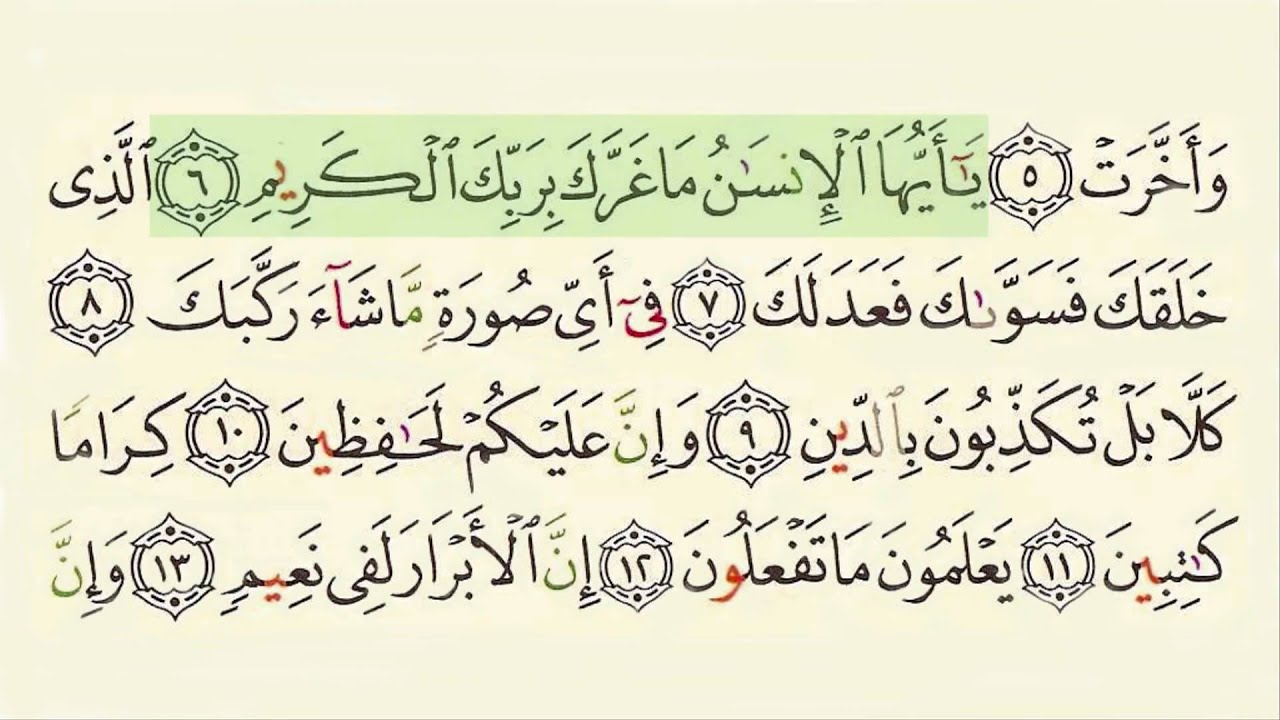 وَأَخَّرَتْ ٥ يَٰٓأَيُّهَا ٱلْإِنسَٰنُ مَا غَرَّكَ بِرَبِّكَ ٱلْكَرِيمِ ٦ ٱلَّذِى
خَلَقَكَ فَسَوَّىٰكَ فَعَدَلَكَ ٧ فِىٓ أَىِّ صُورَةٍ مَّا شَآءَ رَكَّبَكَ ٨
كَلَّا بَلْ تُكَذِّبُونَ بِٱلدِّينِ ٩ وَإِنَّ عَلَيْكُمْ لَحَٰفِظِينَ ١٠ كِرَامًا
كَٰتِبِينَ ١١ يَعْلَمُونَ مَا تَفْعَلُونَ ١٢ إِنَّ ٱلْأَبْرَارَ لَفِى نَعِيمٍ ١٣ وَإِنَّ